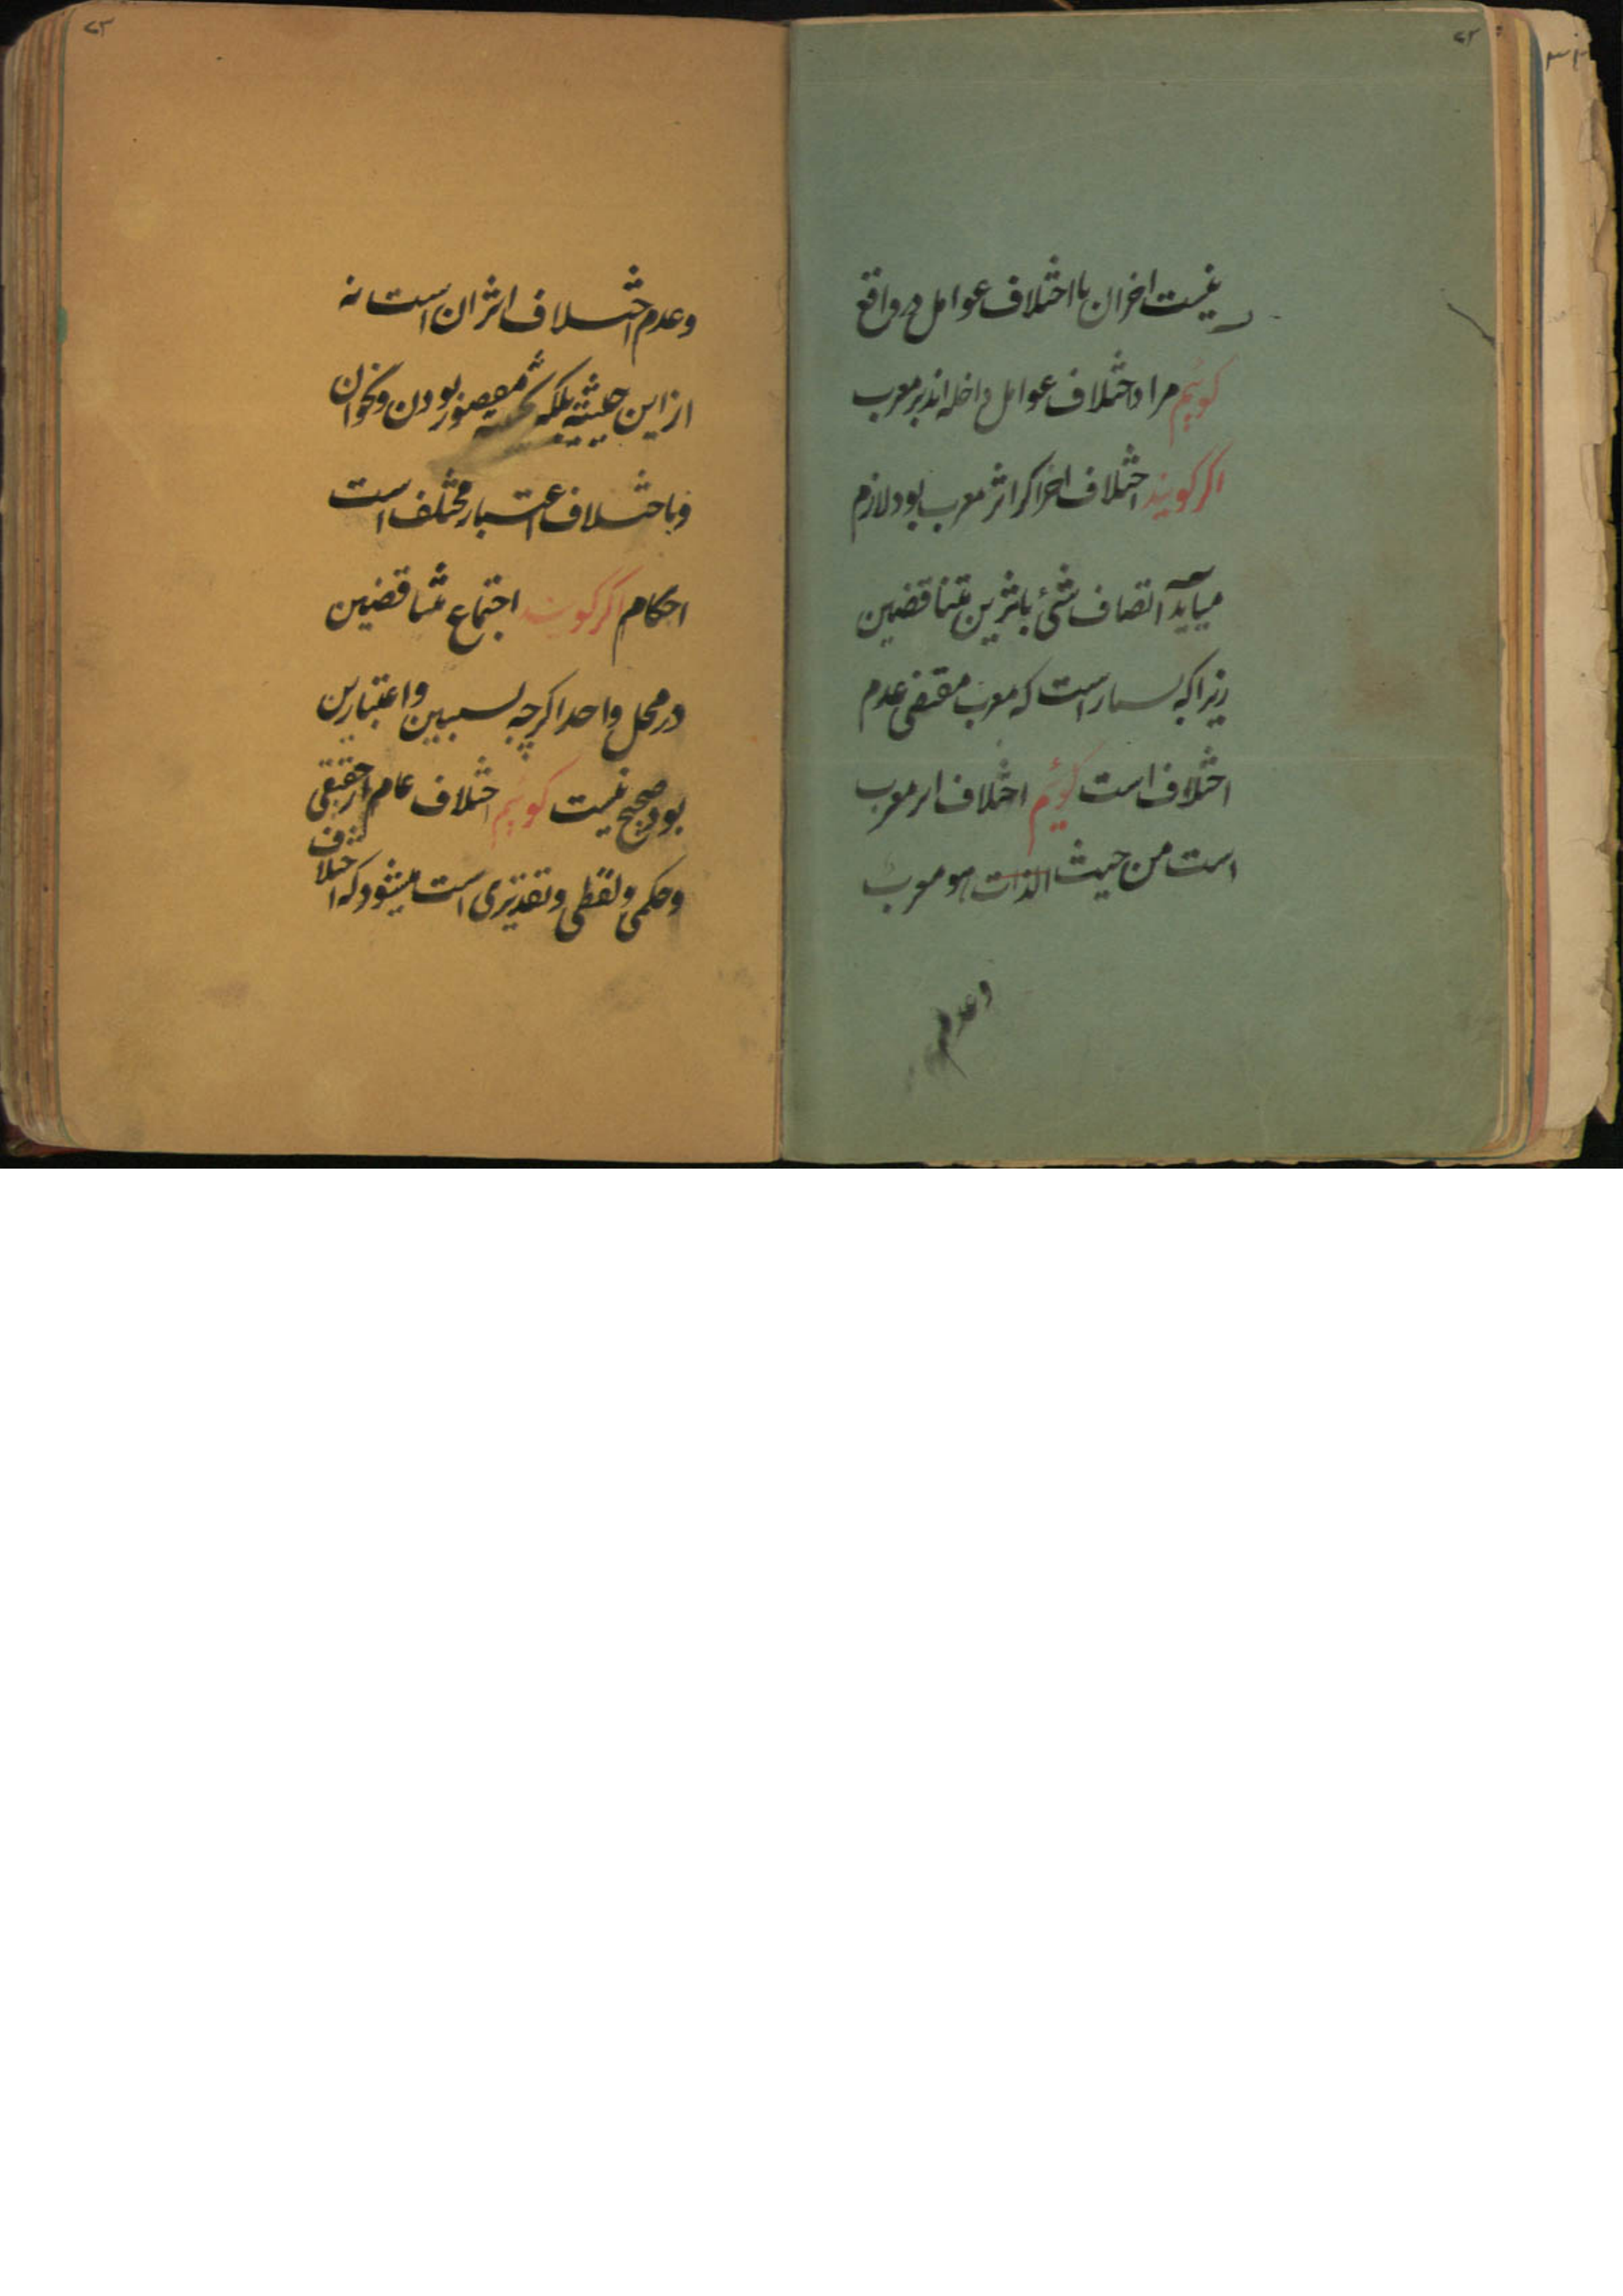 ۷۲
نیست اخر ان با اختلاف عوامل در واقع
کوئیم مراد اختلاف عوامل داخله اند بر معرب
اکر کویند اختلاف اخر اکر اثر معرب بود لازم
میآید اتصاف شئ باثرین متناقضین
زیرا که است که معرب مقتضی عدم
اختلاف است کوئیم اختلاف اثر معرب
است من حیث الذات هو معرب
وعدم
۷۳
وعدم اختلاف اثر ان است نه
از این حیثیه بلکه مقصور بودن ونحو ان
وباختلاف اعتبار مختلف است
احکام اکر کویند اجتماع متناقضین
در محل واحد اکرچه بسببین واعتبارین
بود صحیح نیست کوئیم اختلاف عام از حقیقی
وحکمی ولفظی وتقدیری است میشود که اختلاف